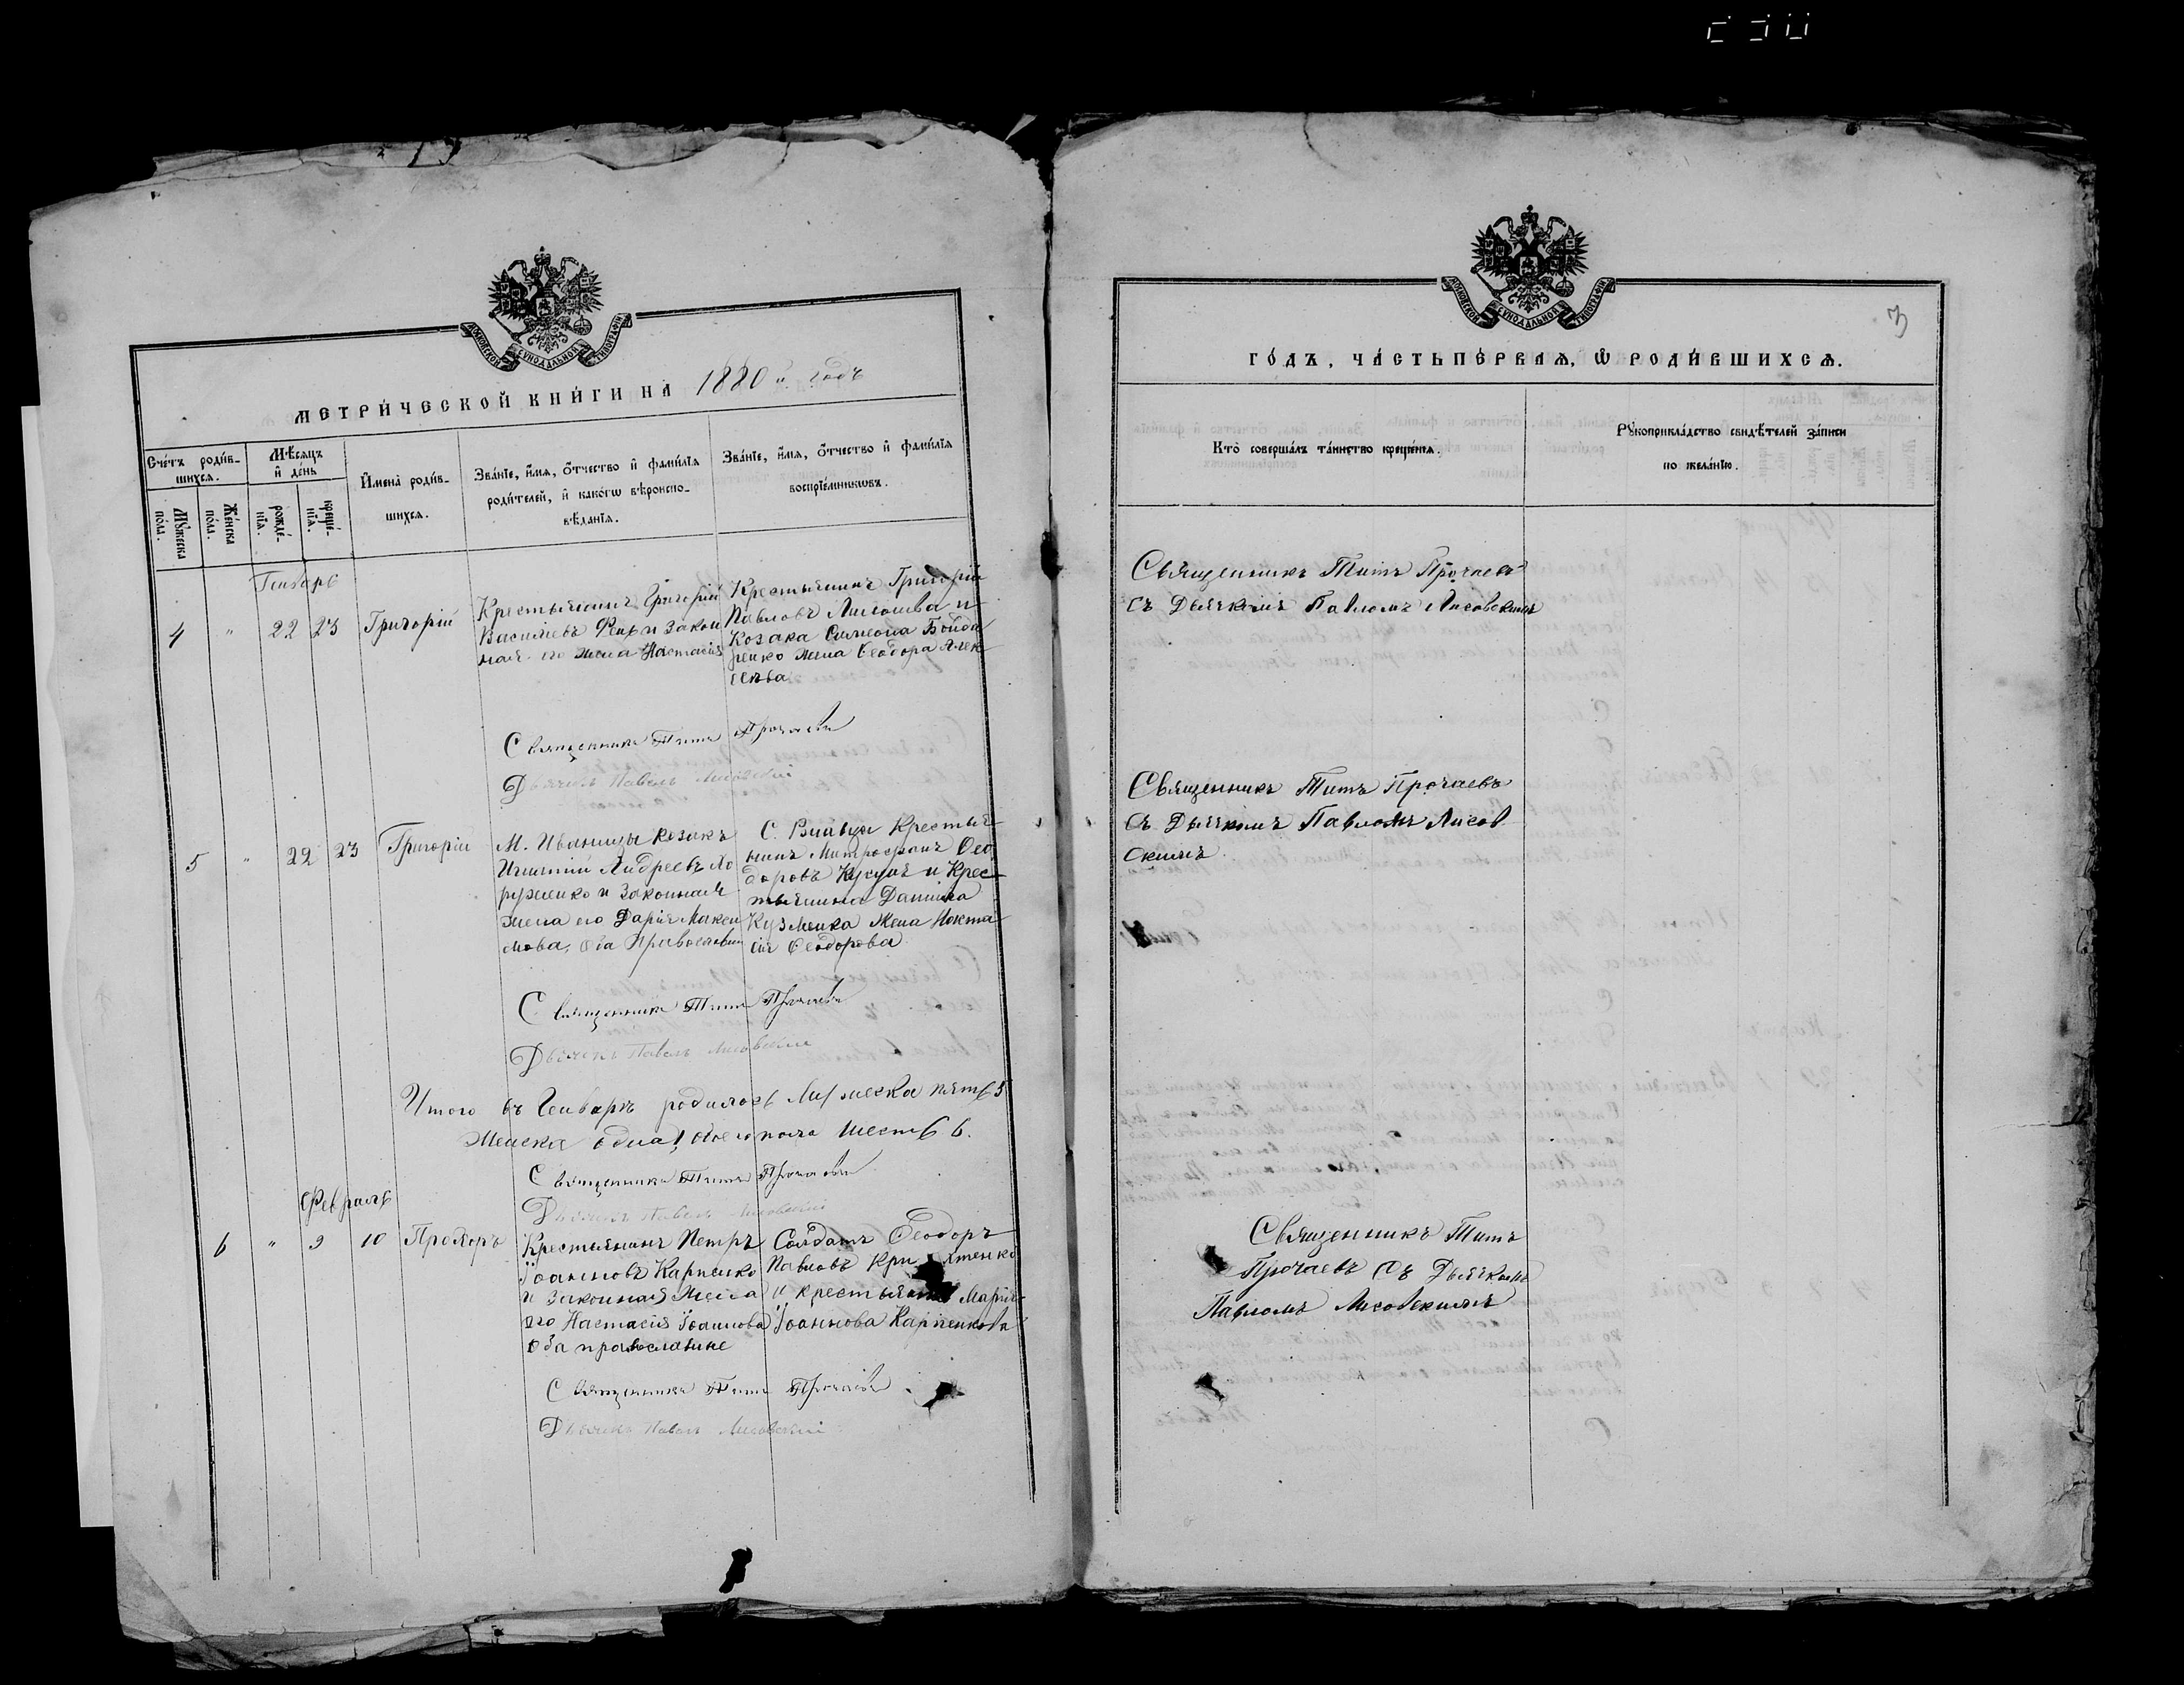 МОСКОВСКОЙ СѴНОДАЛЬНОЙ ТИПОГРАФІИ
МЕТРИ́ЧЕСКОЙ КНИ́ГИ НА 1880й годъ
Сче́тъ роди́в-
шихсѧ.
Мѣ́сѧцъ
и҆ де́нь
Мꙋ́жеска по́ла.
Же́нска по́ла.
рожде́-
нїѧ.
креще́-
нїѧ.
И҆мена̀ роди́в-
шихсѧ.
Зва́нїе, и҆́мѧ, ѻ҆́тчество и҆ фами́лїѧ
роди́телей, и҆ како́гѡ вѣроиспо-
вѣ́данїѧ.
Зва́нїе, и҆́мѧ, ѻ҆́тчество и҆ фами́лїѧ
воспрїе́мникѡвъ.
Генварь
4 " 22 23 Григорій
Крестьянинъ Григорій
Васильевъ и закон
ная его жена Настасія
Крестьянинъ Григорій
Павловъ и
Козака Симеона Бойда
ренко жена Ѳеодора Алек
сѣева
Священникъ Титъ Прочаевъ
Дьячекъ Павелъ Лисовскій
5 " 22 23 Григорій
М. Иваницы козакъ
Игнатій Андреевъ Хо
руженко и законная
жена его Дарія Макси
мова, оба Православни
С. Крестья
нинъ Митрофанъ Ѳео
доровъ и Крес
тьянина Даніила
Кузменка жена
Ѳеодорова
Священникъ Титъ Прочаевъ
Дьячекъ Павелъ Лисовскій
Итого въ Генварѣ родилось Мужеска пять 5
Женска одна 1, обоего пола шесть 6.
Священникъ Титъ Прочаевъ
Дьячекъ Павелъ Лисовскій
Февраль
6 " 9 10 Прохоръ
Крестьянинъ Петръ
Іоанновъ Карпенко
и законная жена
его Настасія Іоаннова
оба православніе
Солдатъ Ѳеодоръ
Павловъ
и крестьян Марія
Іоаннова Карпенкова
Священникъ Титъ Прочаевъ
Дьячекъ Павелъ Лисовскій
МОСКОВСКОЙ СѴНОДАЛЬНОЙ ТИПОГРАФІИ
3
ГО́ДЪ, ЧА́СТЬ ПЕ́РВАѦ, Ѽ РОДИ́ВШИХСѦ.
Кто̀ соверша́лъ та́инство креще́нїѧ.
Рꙋкоприкла́дство свидѣ́телей за́писи
по жела́нїю.
Священникъ Титъ Прочаевъ
съ Дьячкомъ Павломъ Лисовскимъ
Священникъ Титъ Прочаевъ
съ Дьячкомъ Павломъ Лисов
скимъ
Священникъ Титъ
Прочаевъ съ Дьячкомъ
Павломъ Лисовскимъ